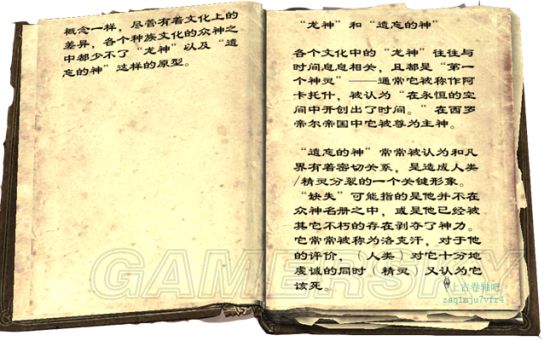 概念一样，尽管有着文化上的
差异，各个种族文化的众神之
中都少不了“龙神”以及“遗
忘的神”这样的原型。
“龙神”和“遗忘的神”
各个文化中的“龙神”往往与
时间息息相关，且都是“第一
个神灵”——通常它被称作阿
卡托什，被认为“在永恒的空
间中开创出了时间。”在西罗
帝尔帝国中它被尊为主神。
“遗忘的神”常常被认为和凡
界有着密切关系，是造成人类
/精灵分裂的一个关键形象。
“缺失”可能指的是他并不在
众神名册之中，或是他已经被
其它不朽的存在剥夺了神力。
它常常被称为洛克汗，对于他
的评价，（人类）对它十分地
虔诚的同时（精灵）又认为它
该死。
GAMERSKY
上古卷轴吧
zaq1mju7vfr4